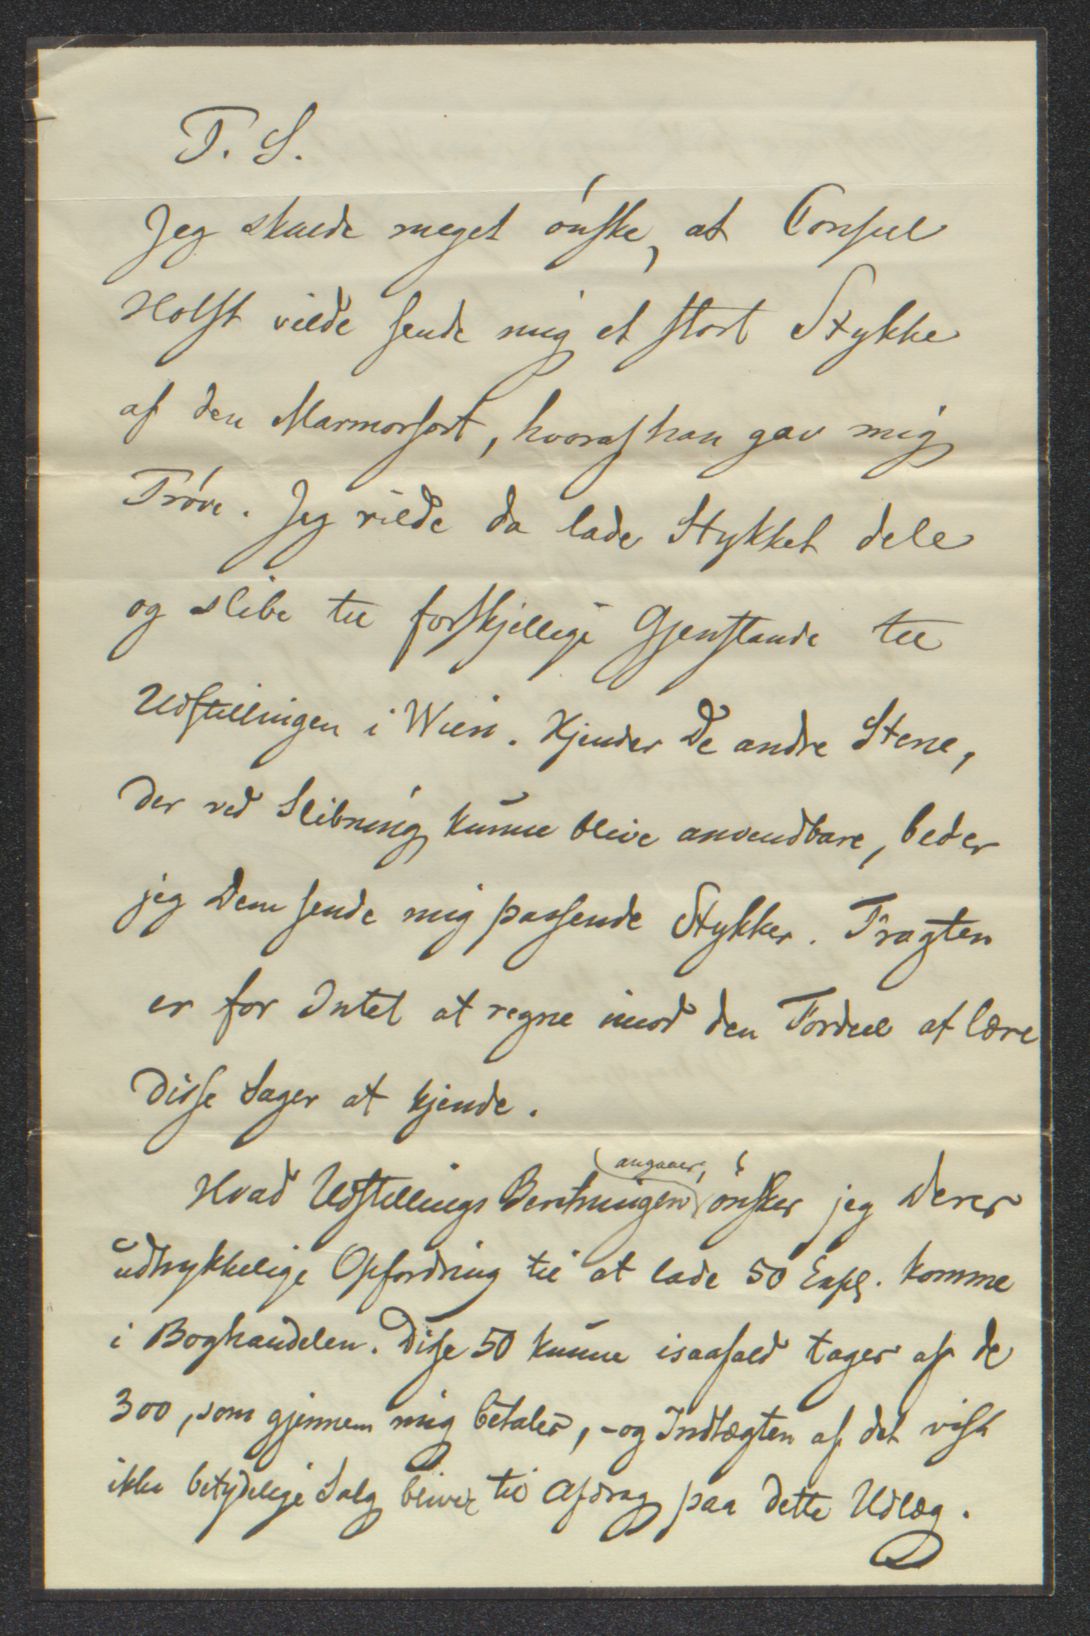 P. S.
Jeg skulde meget ønske, at Consul
Holst vilde sende mig et stort Stykke
af den Marmorsort, hvoraf han gav mig
Prøve. Jeg vilde da lade Stykket dele
og slibe til forskjellige Gjenstande til
Udstillingen i Wien. Kjender De andre Stene,
der ved Slibning kunne blive anvendbare, beder
jeg Dem sende mig passende Stykker. Fragten
er for Intet at regne imod den Fordeel at lære
disse Sager at kjende.
Hvad Udstillings Beretningen angaaer, ønsker jeg Deres
udtrykkelige Opfordring til at lade 50 Expl. komme
i Boghandelen. Disse 50 kunne isaafald tages af de
300, som gjennem mig betales, - og Indtægten af det vist
ikke betydelige Salg bliver til Afdrag paa dette Udlæg.